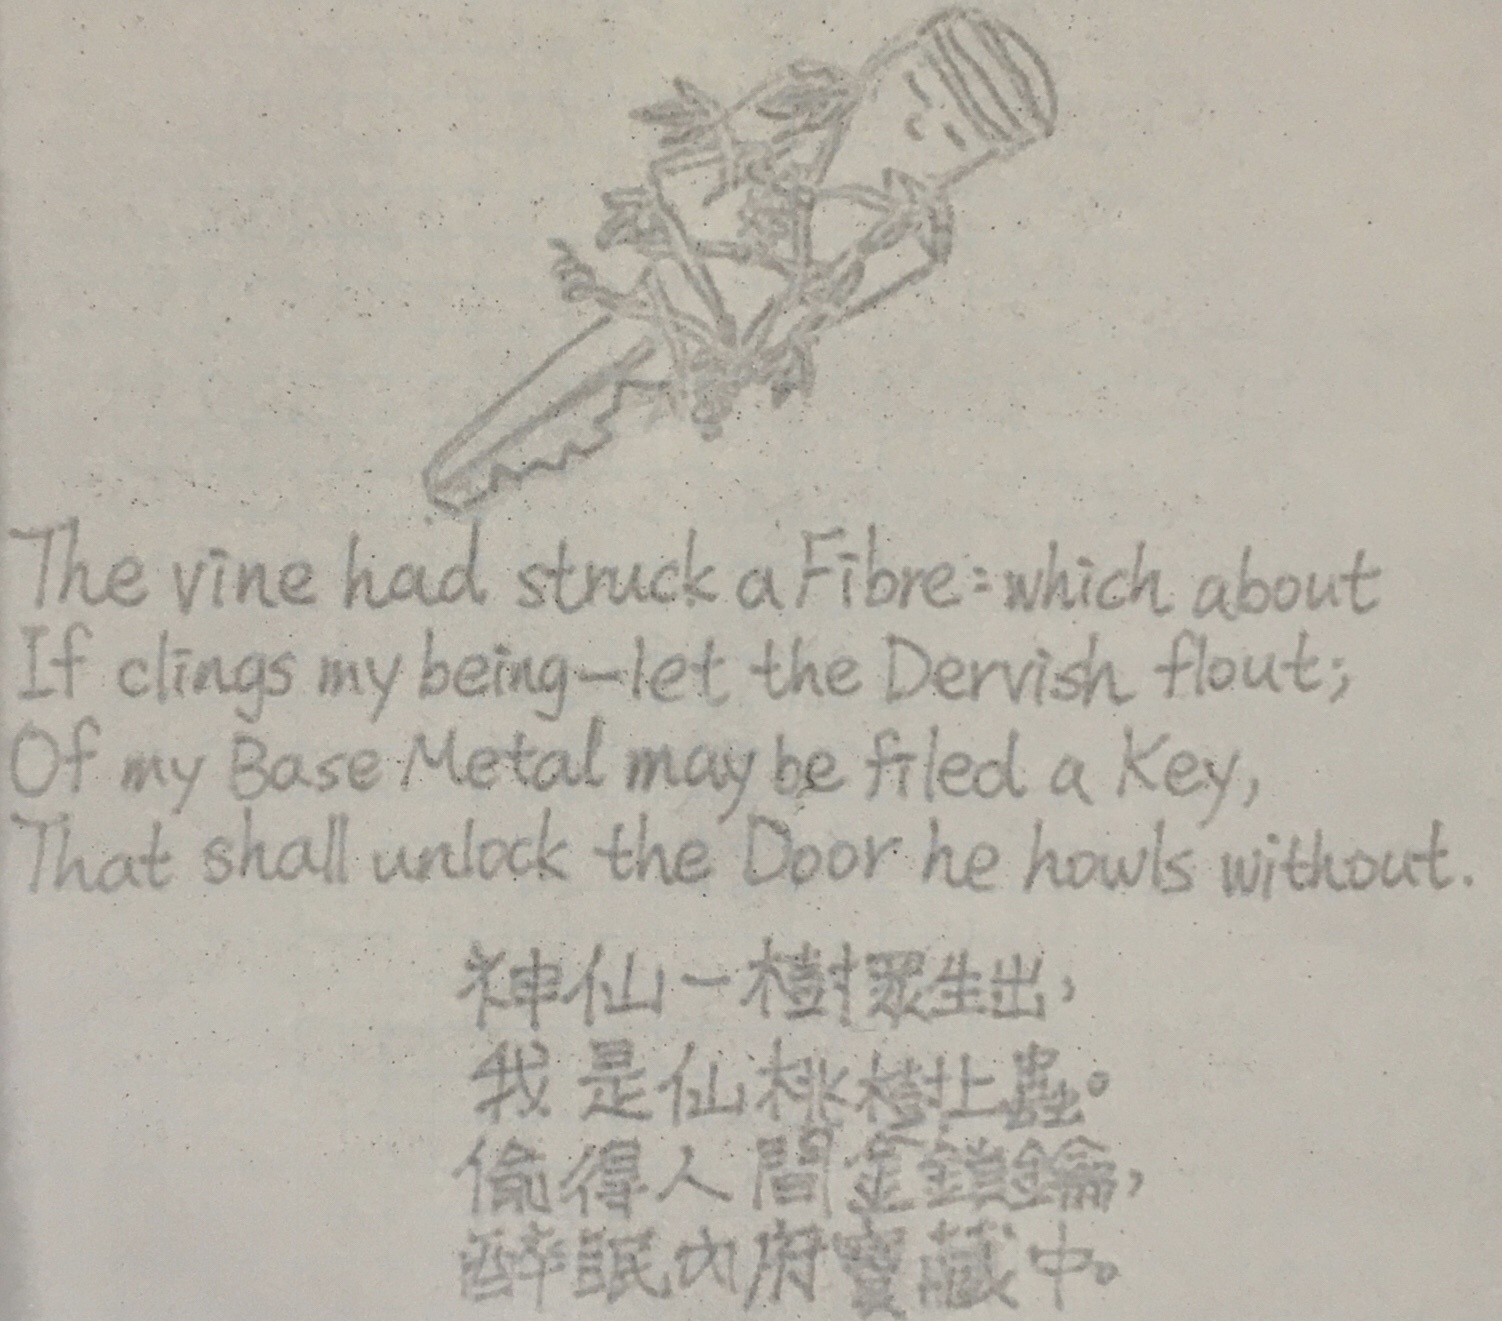 The vine had struck a Fibre: which about
If clings my being—let the Dervish flout;
Of my Base Metal may be filed a Key,
That shall unlock the Door he howls without.
神仙一樹眾生出，
我是仙桃樹上蟲。
偷得人間金鎖鑰，
醉眠內府寶藏中。